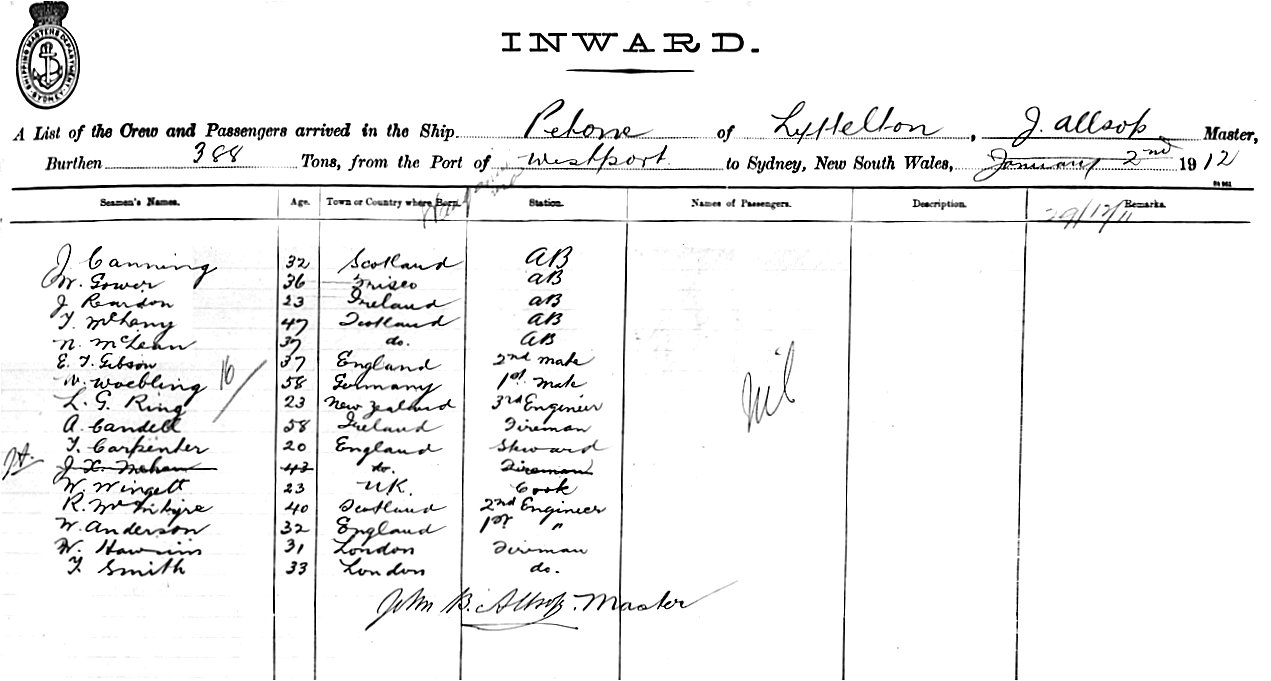 SHIPPING MASTERS DEPARTMENT SYDNEY
INWARD.
A List of the Crew and Passengers arrived in the Ship Petone of Lyttelton, J. Allsop Master,
Burthen 388 Tons, from the Port of Westport to Sydney, New South Wales, January 2nd 1912
Seamen's Names. Age. Town or Country where Born. Station. Names of Passengers. Description. Remarks.
29/12/11
J. Canning 32 Scotland AB
W. Gower 36 Frisco AB
J. Reardon 23 Ireland AB
T. 47 Scotland AB
N. McLean 37 do. AB
E. T. Gibson 37 England 2nd Mate
W. Woebling 58 Germany 1st Mate
16
L. G. Ring 23 New Zealand 3rd Engineer
A. Candell 58 Ireland Fireman
T. Carpenter 20 England Steward
J. 42 do. Fireman
W. Wingett 23 U.K. Cook
R. McIntyre 40 Scotland 2nd Engineer
W. Anderson 32 England 1st "
W. 31 London Fireman
T. Smith 33 London do.
Nil
John B. Allsop. Master